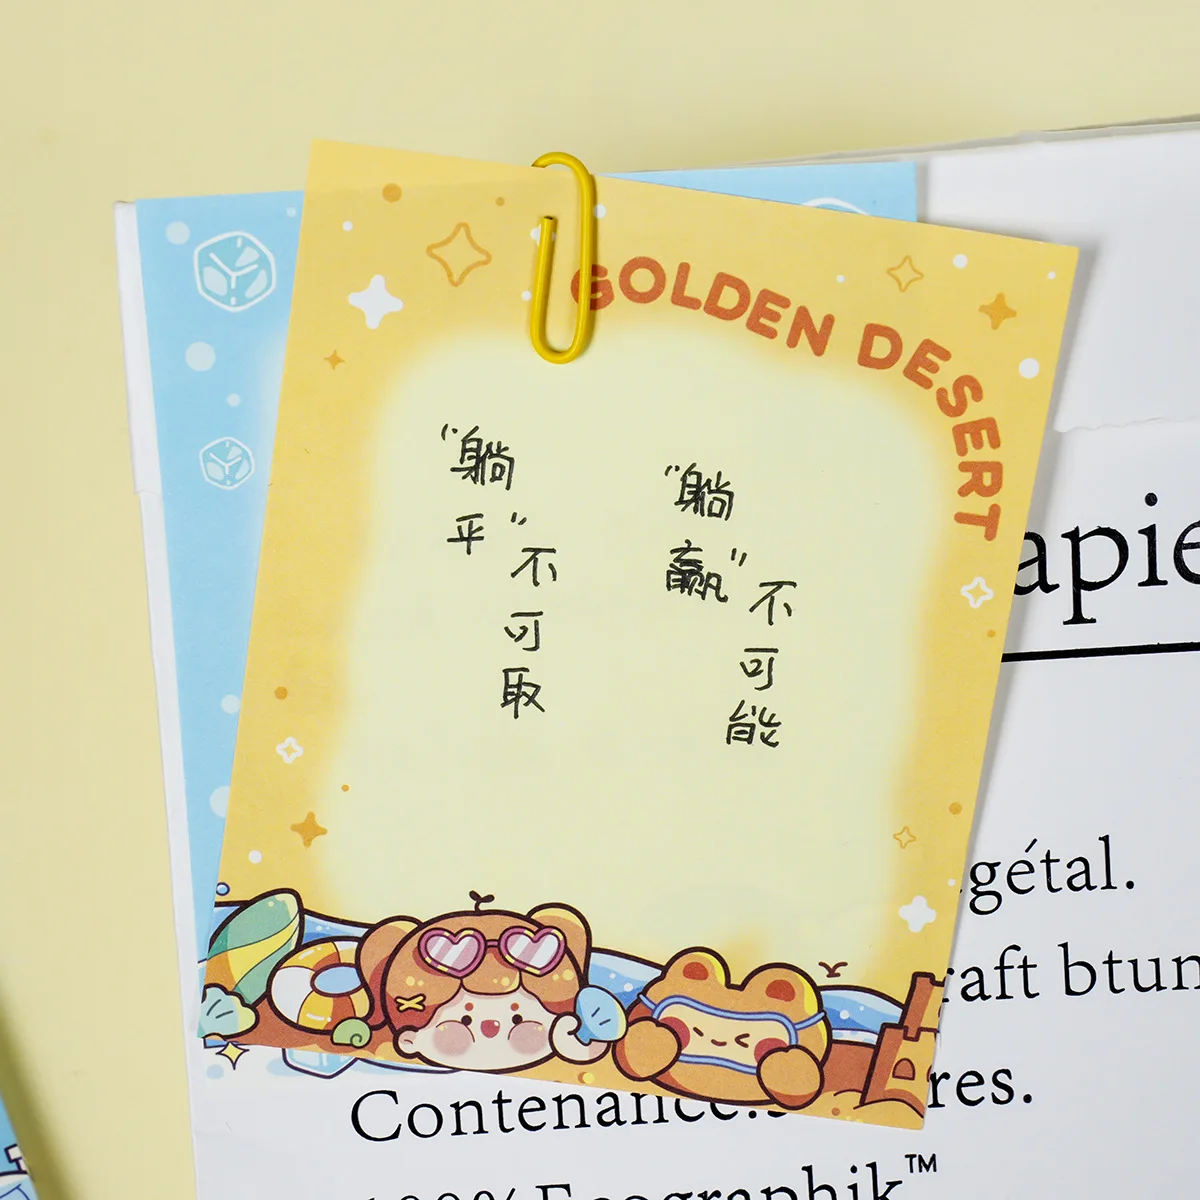 GOLDEN DESERT
"躺平"不可取
"躺赢"不可能
apie
gétal.
raft btun
Contenance:
res.
100% Ecographik™